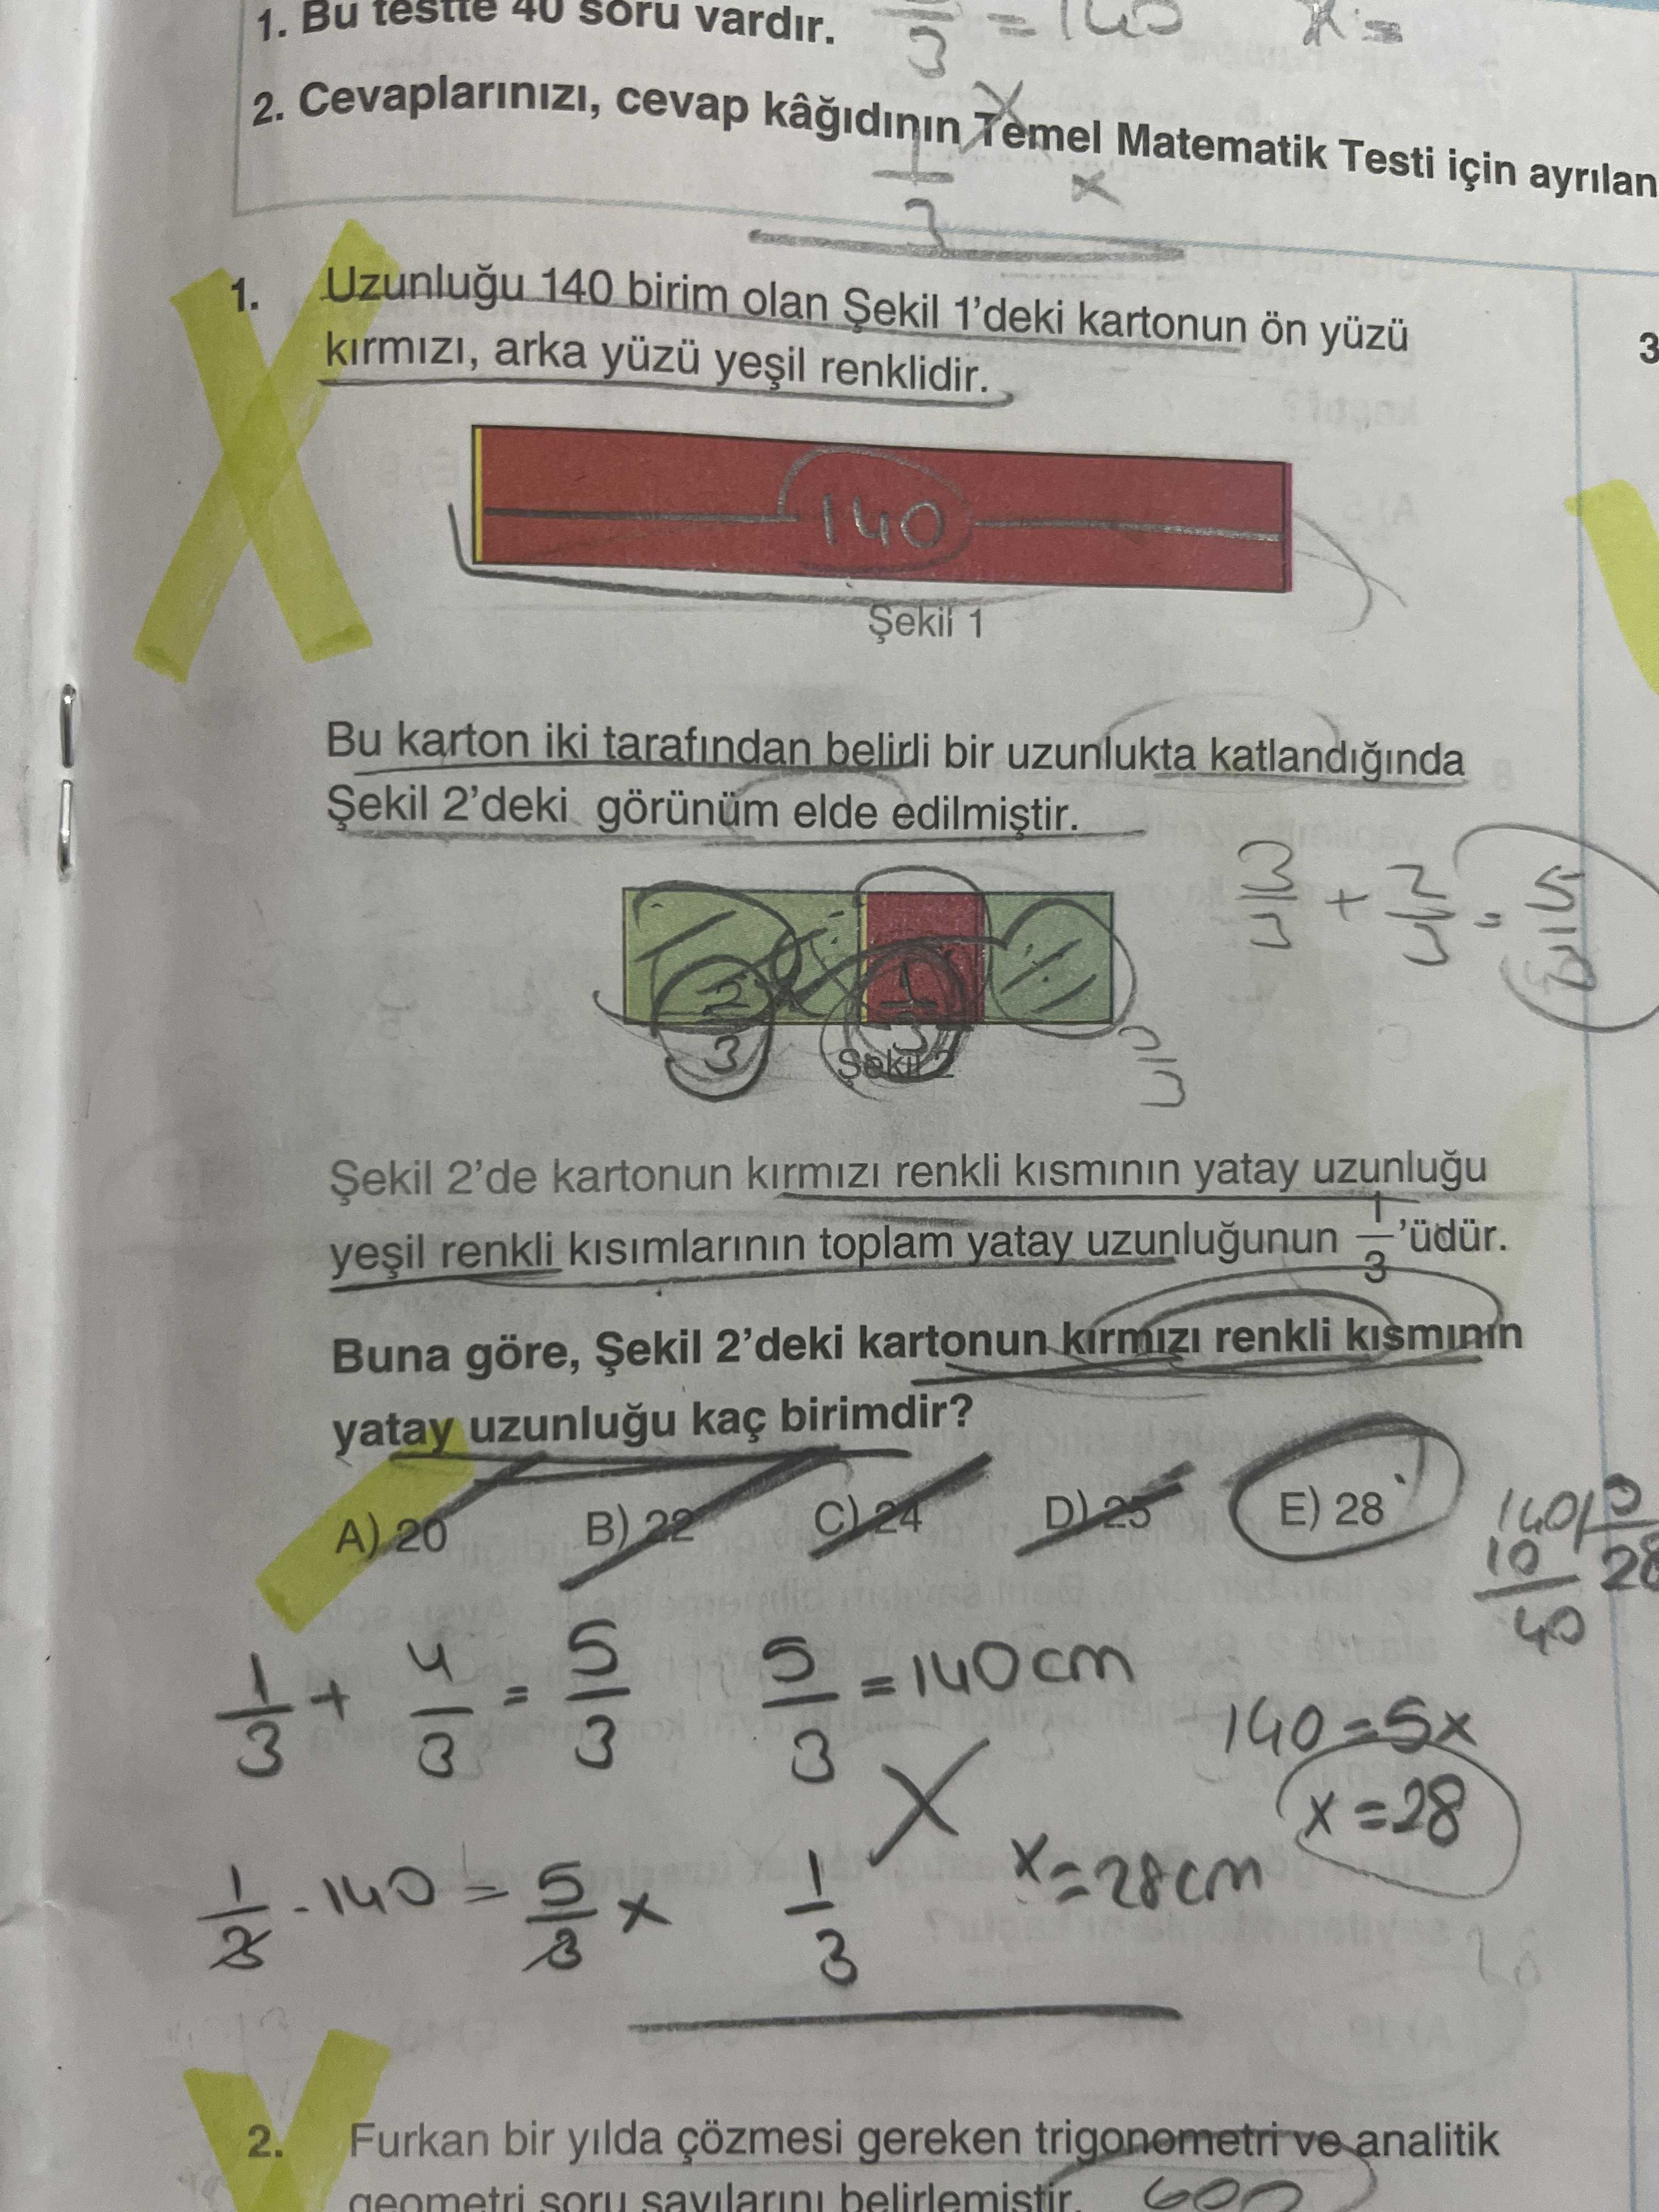 1. Bu testte 40 soru vardır.
3 = 140 x =
2. Cevaplarınızı, cevap kâğıdının Temel Matematik Testi için ayrılan
1
3 x
1. Uzunluğu 140 birim olan Şekil 1'deki kartonun ön yüzü
kırmızı, arka yüzü yeşil renklidir.
3
140
Şekil 1
Bu karton iki tarafından belirli bir uzunlukta katlandığında
Şekil 2'deki görünüm elde edilmiştir.
3/3 + 2/3 = 5/3
2/3
1/3
2/3
Şekil 2
Şekil 2'de kartonun kırmızı renkli kısmının yatay uzunluğu
yeşil renkli kısımlarının toplam yatay uzunluğunun 1/3'üdür.
Buna göre, Şekil 2'deki kartonun kırmızı renkli kısmının
yatay uzunluğu kaç birimdir?
A) 20 B) 22 C) 24 D) 25 E) 28
140
10 28
40
1/3 + 4/3 = 5/3 5/3 = 140cm
140 = 5x
x = 28
1/3 . 140 = 5/3 x 1/3 x = 28cm
2. Furkan bir yılda çözmesi gereken trigonometri ve analitik
geometri soru sayılarını belirlemiştir.
600